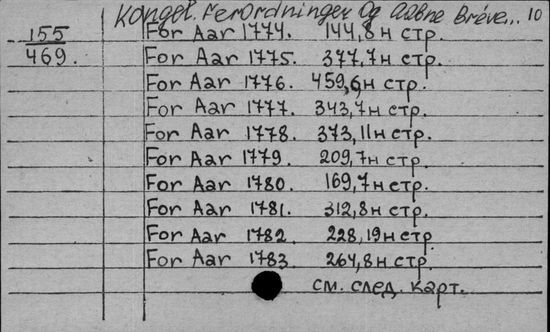 Kongel. Ferordninger Og Aabne Bréve... 10
155 For Aar 1774. 144,8н стр.
469. For Aar 1775. 377,7н стр.
For Aar 1776. 459,6н стр.
For Aar 1777. 343,7н стр.
For Aar 1778. 373,11н стр.
For Aar 1779. 209,7н стр.
For Aar 1780. 169,7н стр.
For Aar 1781. 312,8н стр.
For Aar 1782. 228,19н стр.
For Aar 1783. 264,8н стр.
см. след. карт.